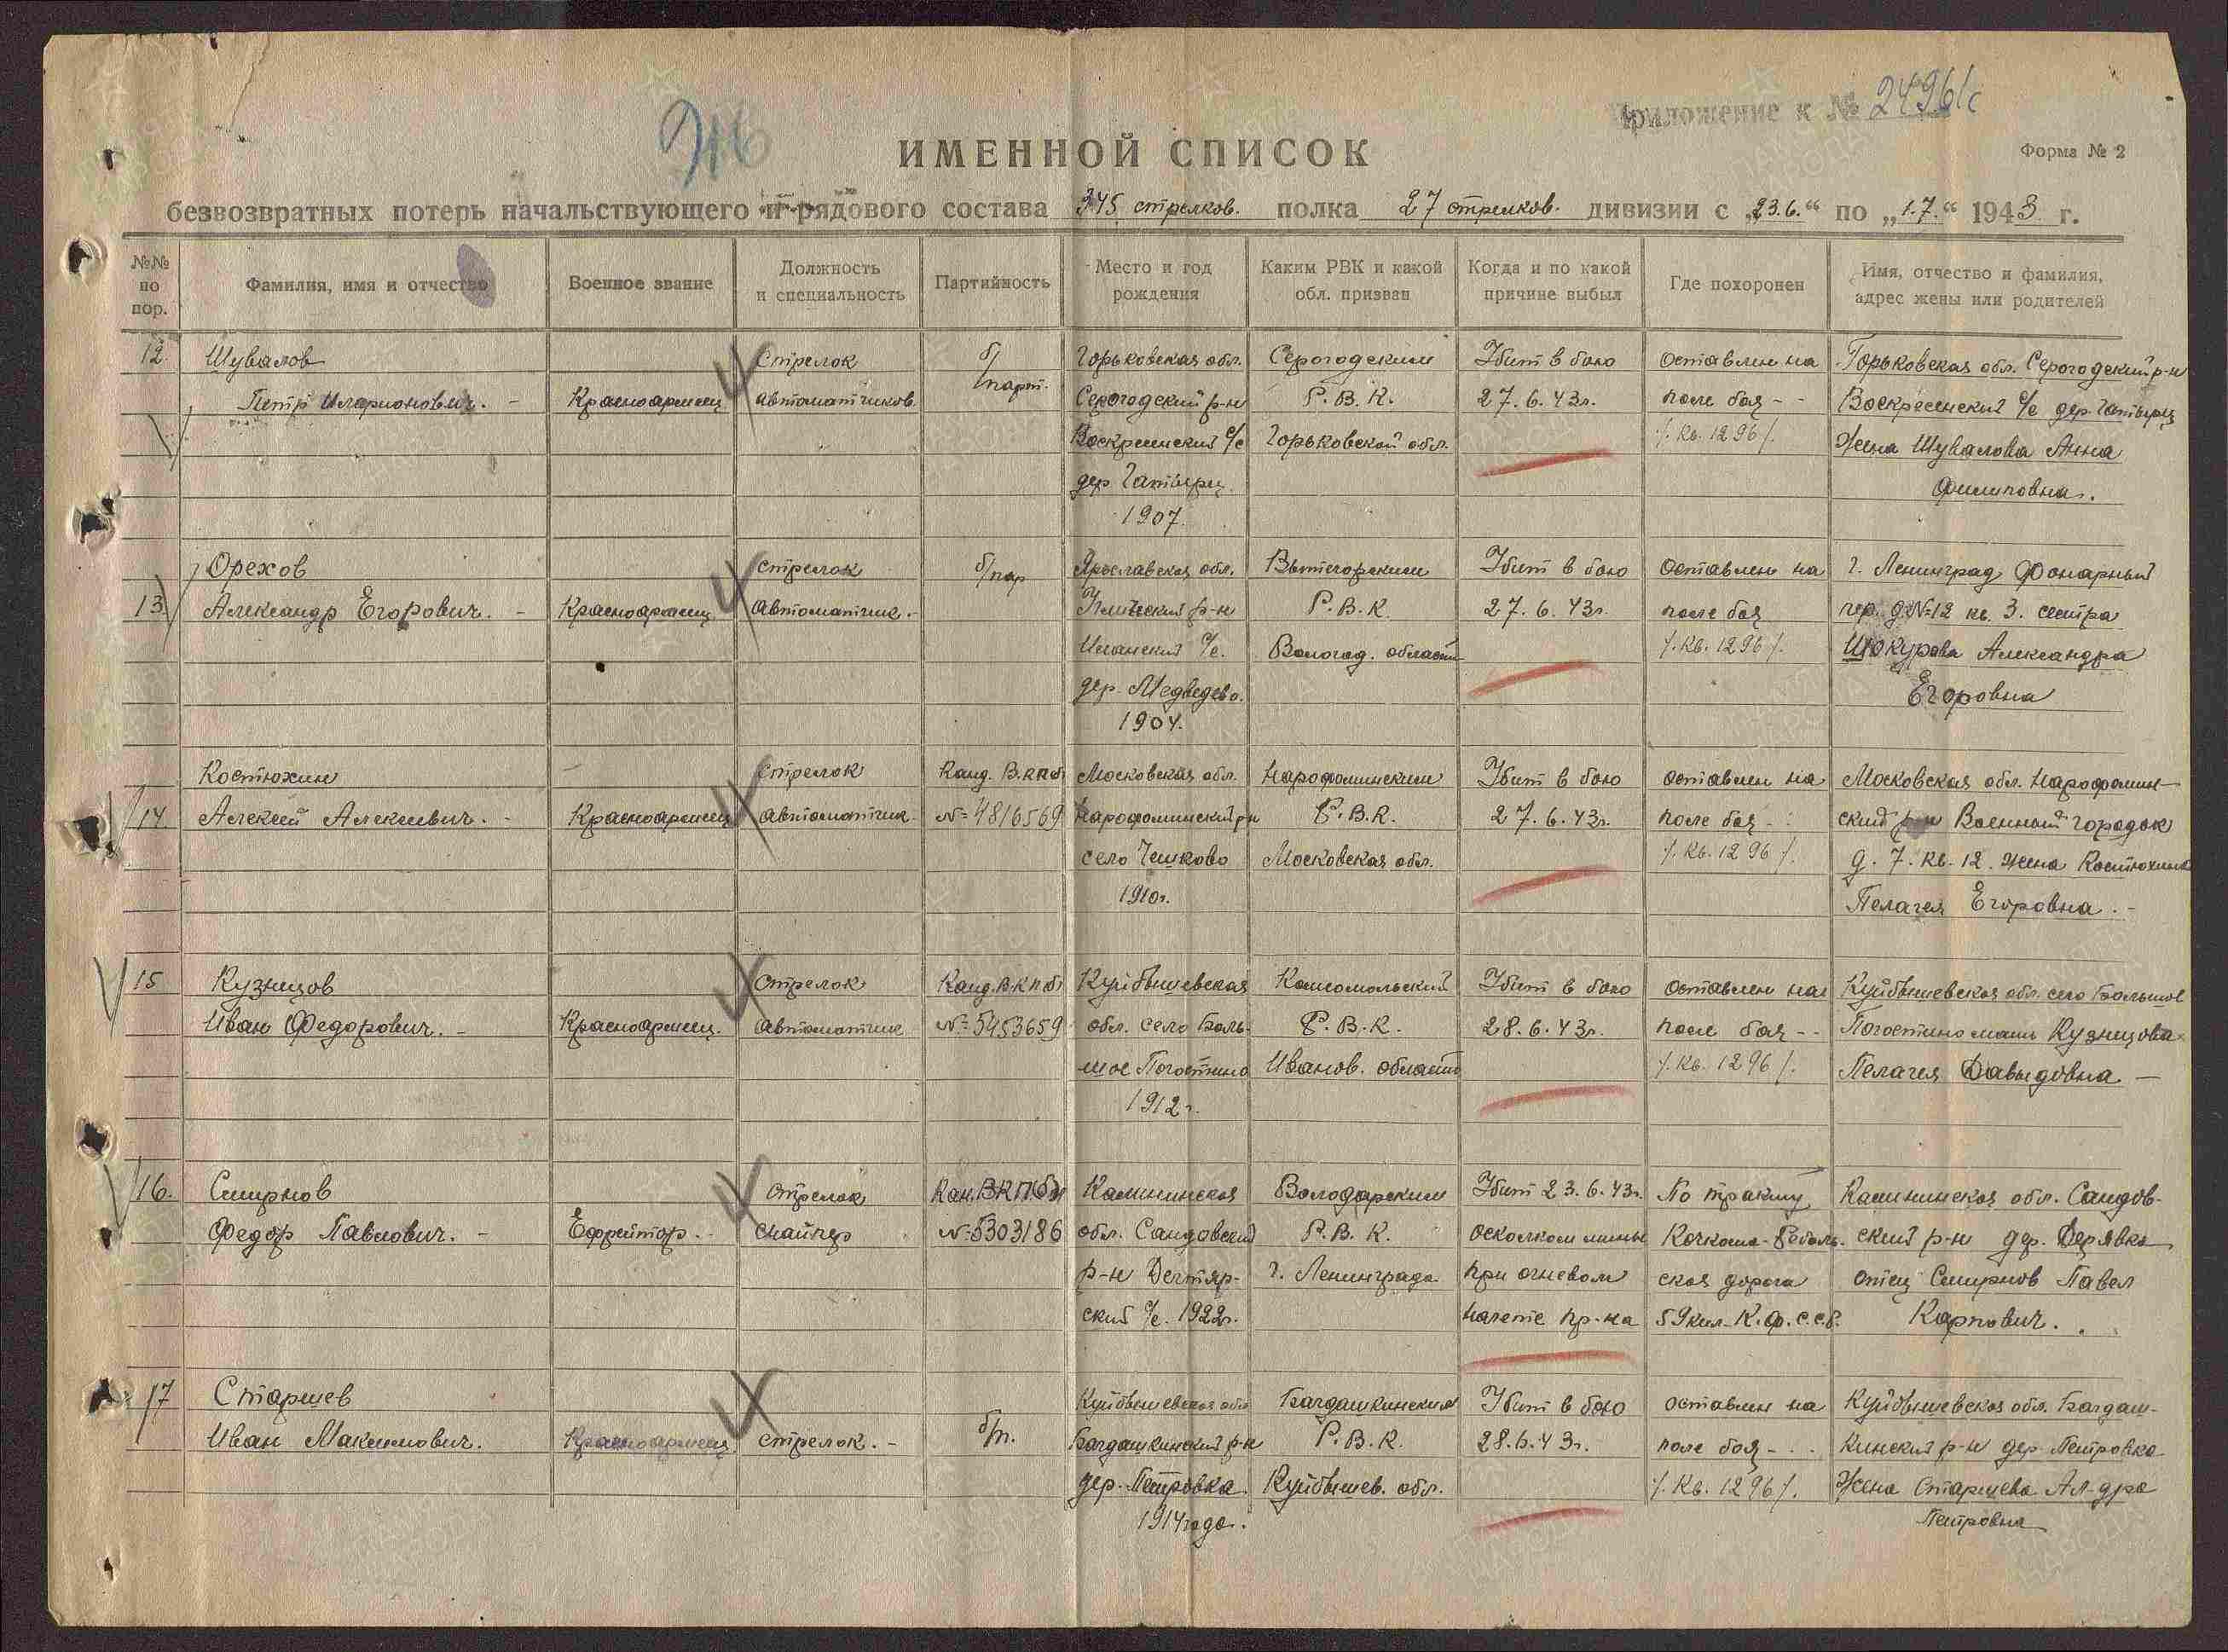 Приложение к № 2496/с
ИМЕННОЙ СПИСОК
Форма № 2
безвозвратных потерь начальствующего и рядового состава 345 стрелков. полка 27 стрелков. дивизии с „23.6.“ по „1.7.“ 1943 г.
№№ по пор.
Фамилия, имя и отчество
Военное звание
Должность и специальность
Партийность
Место и год рождения
Каким РВК и какой обл. призван
Когда и по какой причине выбыл
Где похоронен
Имя, отчество и фамилия, адрес жены или родителей
12.
Шувалов
Петр Иларионович. -
Красноармеец
Стрелок
автоматчиков
б/
парт.
Горьковская обл.
Серогодский р-н
Воскресенский с/с
дер.
1907.
Серогодским
Р.В.К.
Горьковской обл.
Убит в бою
27.6.43г.
оставлен на
поле боя - -
/. Кв. 1296/.
Горьковская обл. Серогодский р-н
Воскресенский с/с дер.
Жена Шувалова Анна
Филиповна.
13.
Орехов
Александр Егорович. -
Красноармеец
стрелок
автоматчик. -
б/пар
Ярославская обл.
р-н
с/с.
дер. Медведево.
1904.
Вытегорским
Р.В.К.
Вологод. области
Убит в бою
27.6.43г.
оставлен на
поле боя
/. Кв. 1296/.
г. Ленинград Фонарный
пер. д.№12 кв. 3. сестра
Александра
Егоровна
14.
Костюхин
Алексей Алексеевич. -
Красноармеец
стрелок
автоматчик -
Канд. В.К.П.б
№ 4816569
Московская обл.
Нарофоминский р-н
село Чешково
1910г.
Нарофоминским
Р.В.К.
Московская обл.
Убит в бою
27.6.43г.
оставлен на
поле боя -
/. Кв. 1296/.
Московская обл. Нарофомин-
ский р-н Военный городок
д. 7. кв. 12. жена Костюхина
Пелагея Егоровна. -
15
Кузнецов
Иван Федорович. -
Красноармеец.
Стрелок
автоматчик
Канд. В К П б
№ 5453659
Куйбышевская
обл. село Боль-
шое Погостино
1912г.
Комсомольский
Р.В.К.
Иванов. области
Убит в бою
28.6.43г.
оставлен на
поле боя - -
/. Кв. 1296/.
Куйбышевская обл. село Большое
Погостино мать Кузнецова
Пелагея Давыдовна -
16.
Смирнов
Федор Павлович. -
Ефрейтор. -
Стрелок
снайпер
Кан. ВКП.б
№ 5303186
Калининская
обл. Сандовский
р-н Дегтяр-
ский с/с. 1922г.
Володарским
Р.В.К.
г. Ленинграда
Убит 23.6.43г.
осколком мины
при огневом
налете пр-ка
По тракту
Кочкома-Реболь-
ская дорога
59 кил. К.Ф.С.С.Р.
Калининская обл. Сандов-
ский р-н дер.
отец Смирнов Павел
Карпович.
17
Старшев
Иван Максимович.
Красноармеец
стрелок. -
б/п.
Куйбышевская обл
Богдашкинский р-н
дер. Петровка
1914 года.
Богдашкинским
Р.В.К.
Куйбышев. обл.
Убит в бою
28.6.43г.
оставлен на
поле боя - . .
/. Кв. 1296/.
Куйбышевская обл. Богдаш-
кинский р-н дер. Петровка
Жена Старшева Ал-дра
Петровна